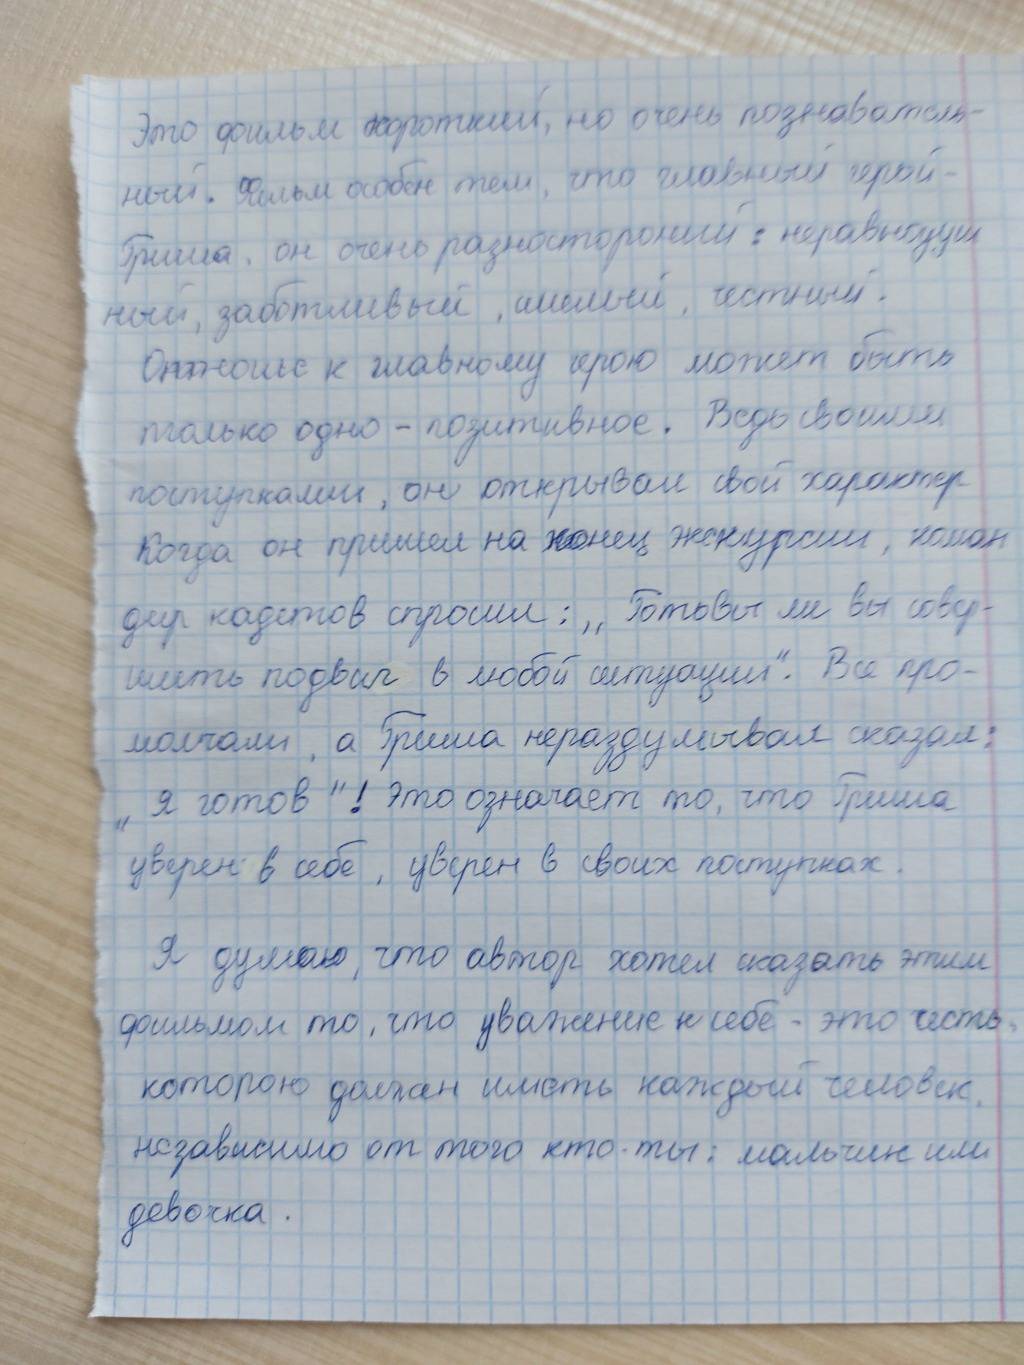 Это фильм короткий, но очень познаватель-
ный. Фильм особен тем, что главный герой-
Гриша. он очень разностороний: неравнодуш
ный, заботливый, смелый, честный.
к главному герою может быть
только одно - позитивное. Ведь своими
поступками, он открывал свой характер
Когда он пришел на конец экскурсии, коман
дир кадетов спросил: „Готовы ли вы совер-
шить подвиг в любой ситуации“. Все про-
молчали, а Гриша нераздумывая сказал:
„я готов"! Это означает то, что Гриша
уверен в себе, уверен в своих поступках.
Я думаю, что автор хотел сказать этим
фильмом то, что уважение к себе - это честь,
которою должен иметь каждый человек,
независимо от того кто-ты: мальчик или
девочка.